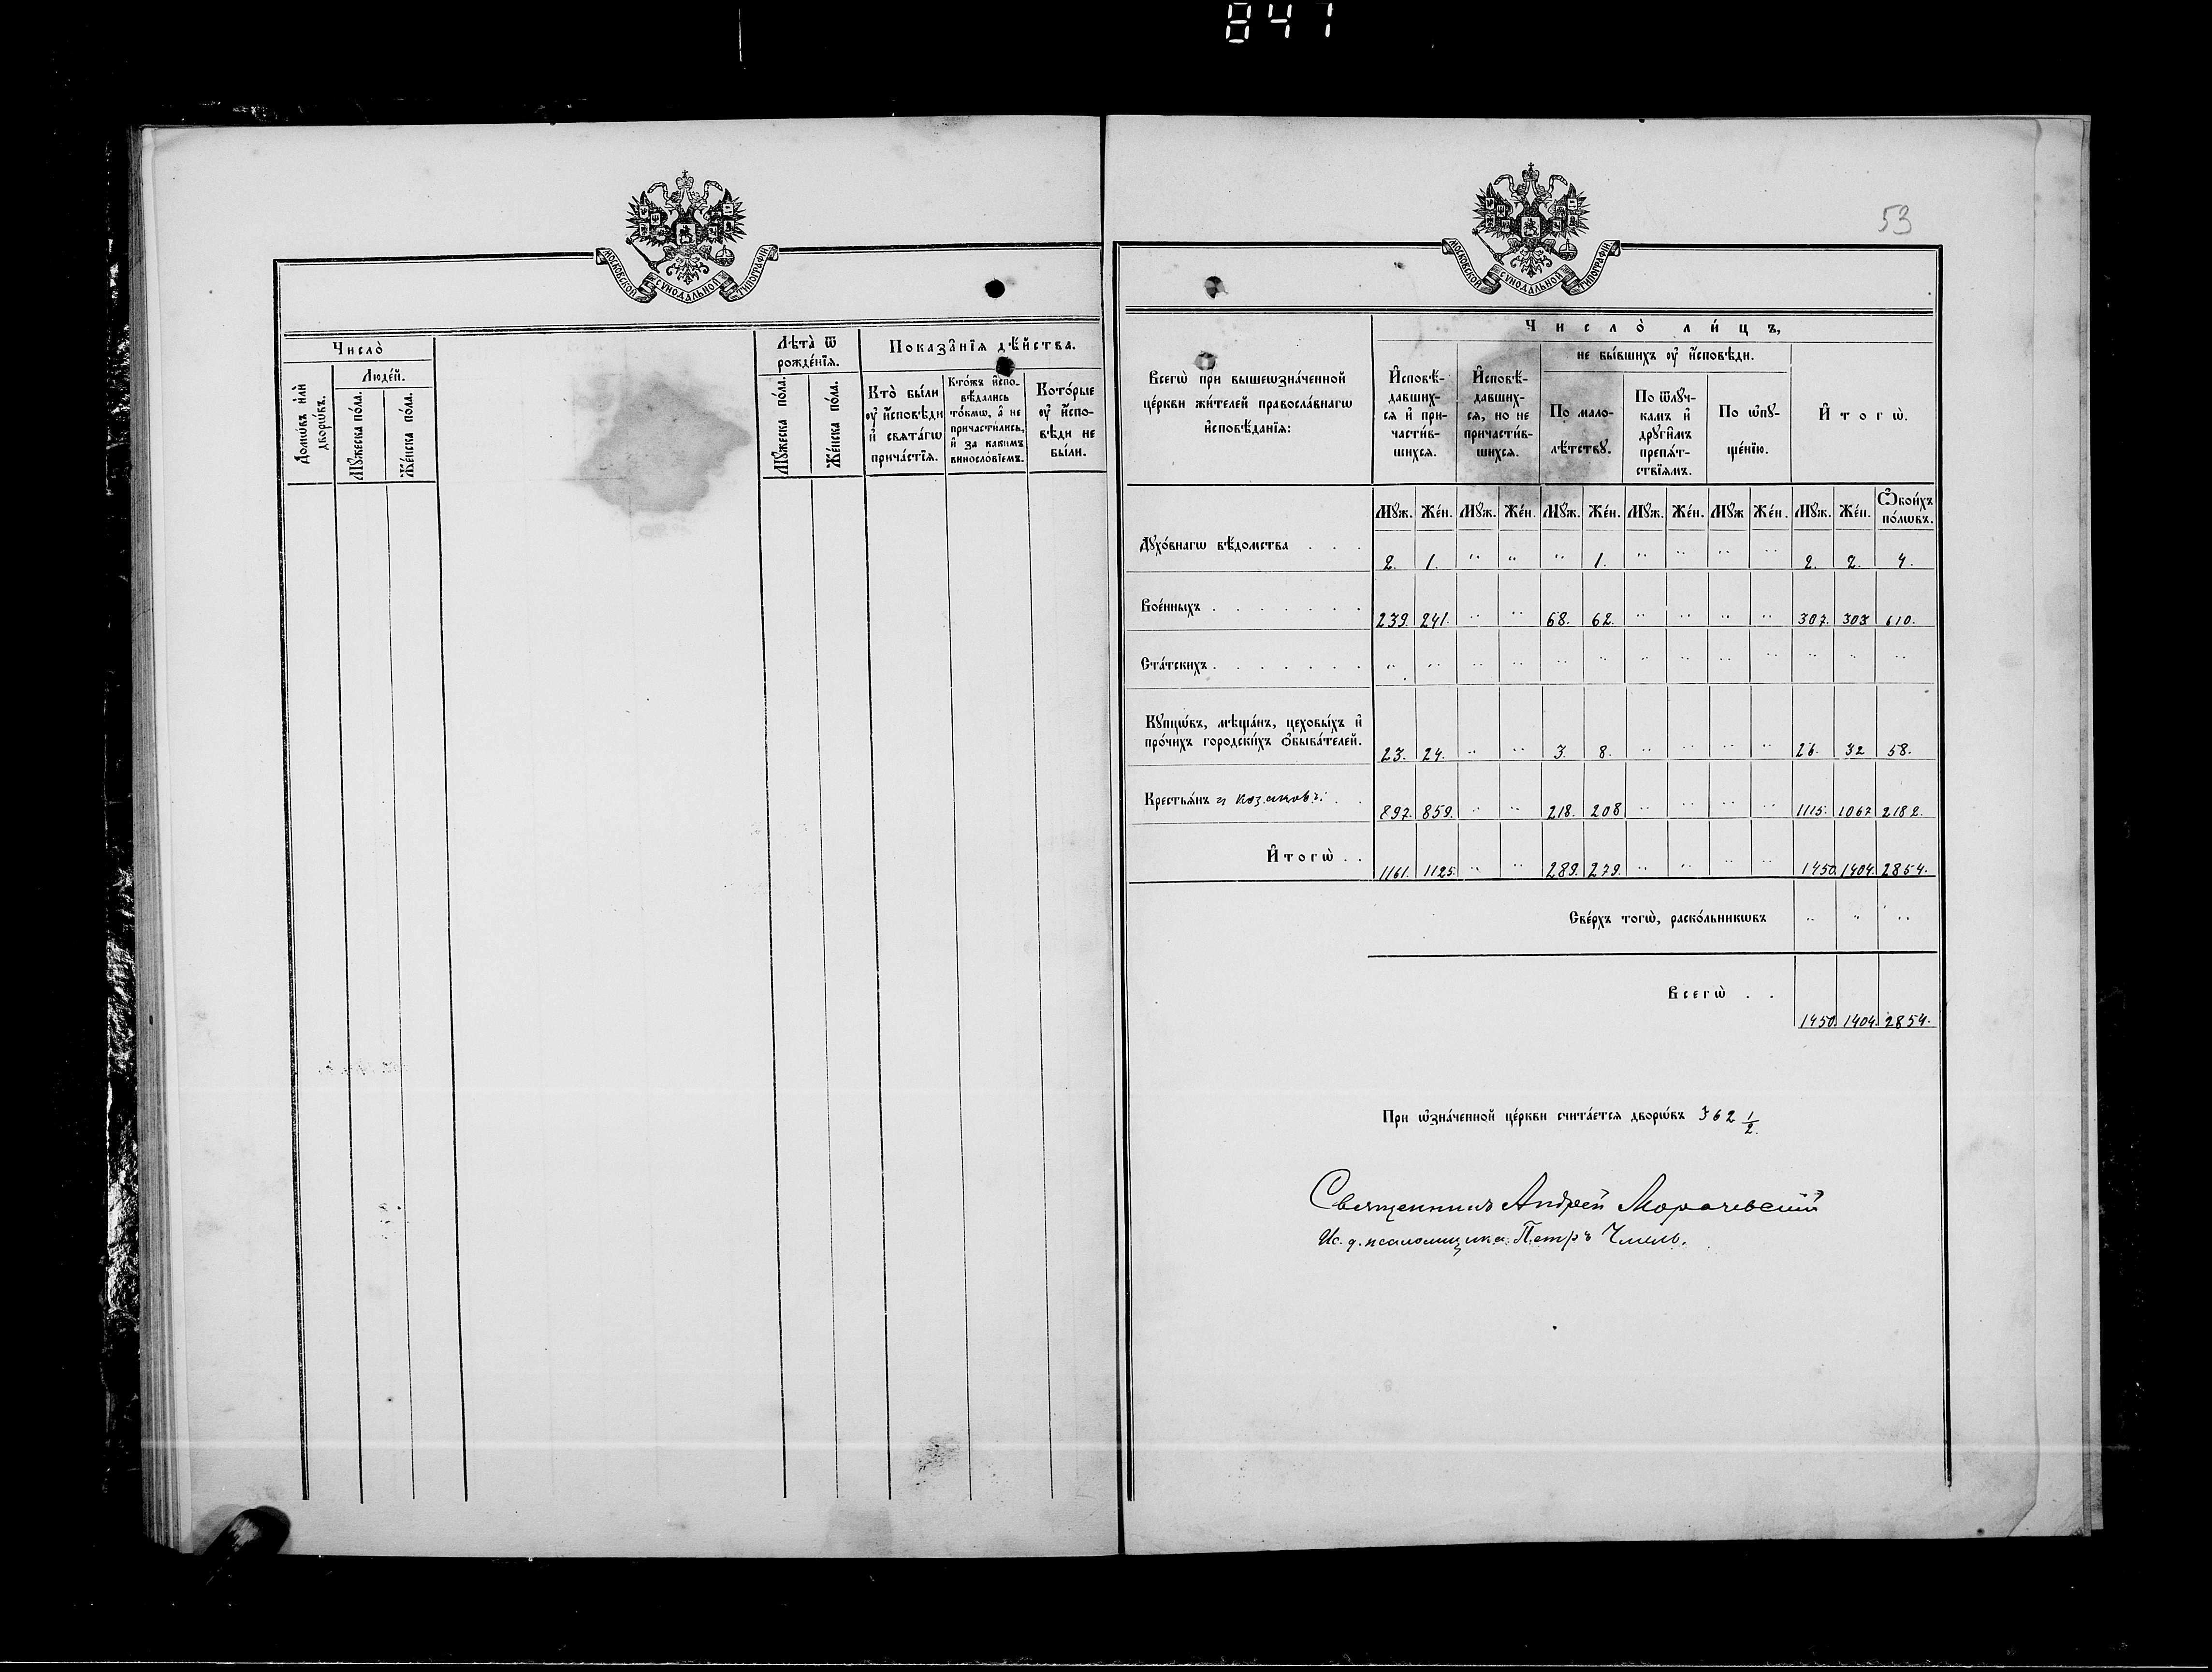 847
МОСКОВСКОЙ СѴНОДАЛЬНОЙ ТИПОГРАФІИ
Число̀
Домѡ́въ и҆лѝ дворѡ́въ.
Люде́й.
Мꙋ́жеска по́ла.
Же́нска по́ла.
Лѣта̀ ѿ рожде́нїѧ.
Мꙋ́жеска по́ла.
Же́нска по́ла.
Показа̑нїѧ дѣ́йства.
Кто̀ бы́ли ᲂу҆ и҆́сповѣди и҆ свѧта́гѡ прича́стїѧ.
Кто́жъ и҆спо-
вѣ́дались
то́кмѡ, а҆ не
причасти́лись,
и҆ за какимъ
винослові́емъ.
Кото́рые
ᲂу҆ и҆́спо-
вѣди не
бы́ли.
53
МОСКОВСКОЙ СѴНОДАЛЬНОЙ ТИПОГРАФІИ
Всегѡ̀ при вышеѡзна́ченной
це́ркви жи́телей правосла́внагѡ
и҆сповѣ́данїѧ:
Число̀ ли́цъ,
И҆сповѣ́-
давших-
сѧ и҆ при-
части́в-
шихсѧ.
И҆сповѣ́-
давших-
сѧ, но не
причасти́в-
шихсѧ.
не бы́вшихъ ᲂу҆ и҆́сповѣди.
По мало-
лѣ́тствꙋ.
По ѿлꙋч-
камъ и҆
дрꙋги̑мъ
препѧ́т-
ствїѧмъ.
По ѡ҆пꙋ-
ще́нїю.
И҆тогѡ̀.
Мꙋ́ж. Же́н. Мꙋ́ж. Же́н. Мꙋ́ж. Же́н. Мꙋ́ж. Же́н. Мꙋ́ж Же́н. Мꙋ́ж. Же́н. Ѻ҆бои́хъ по́лѡвъ.
Дꙋхо́внагѡ вѣ́домства . . . 2. 1. " " " 1. " " " " 2. 2. 4.
Вое́нныхъ . . . . . . . 239. 241. " " 68. 62. " " " " 307. 303 610.
Ста́тскихъ . . . . . . . " " " " " " " " " " " " "
Кꙋпцѡ́въ, мѣща́нъ, цеховы́хъ и҆
про́чихъ городски́хъ ѻ҆быва́телей. 23. 24. " " 3. 8. " " " " 26. 32 58.
Крестьѧ́нъ и козаковъ: . . 897. 859. " " 218. 208 " " " " 1115. 1067 2182.
И҆тогѡ̀ . . 1161. 1125. " " 289. 279. " " " " 1450. 1404. 2854.
Све́рхъ тогѡ̀, раско́льникѡвъ " " "
Всегѡ̀ . . 1450. 1404. 2854.
При ѡ҆зна́ченной це́ркви счита́етсѧ дворѡ́въ 362 1/2.
Священникъ Андрей Морачевскій
Ис. д. псаломщика Петръ Чмиль.